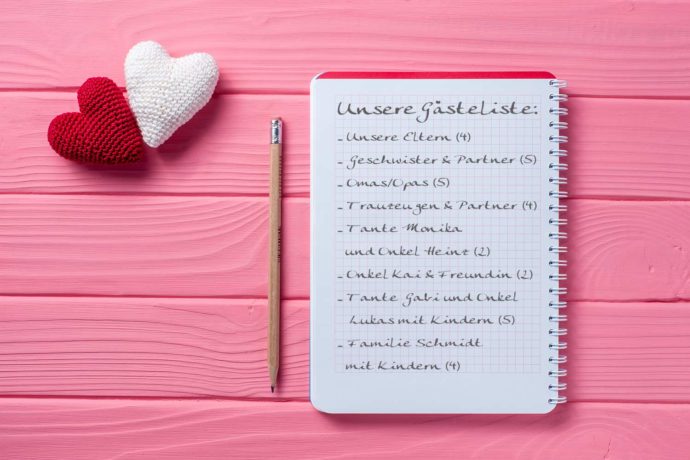 Unsere Gästeliste:
- Unsere Eltern (4)
- Geschwister & Partner (5)
- Omas/Opas (5)
- Trauzeugen & Partner (4)
- Tante Monika
und Onkel Heinz (2)
- Onkel Kai & Freundin (2)
- Tante Gabi und Onkel
Lukas mit Kindern (5)
- Familie Schmidt
mit Kindern (4)